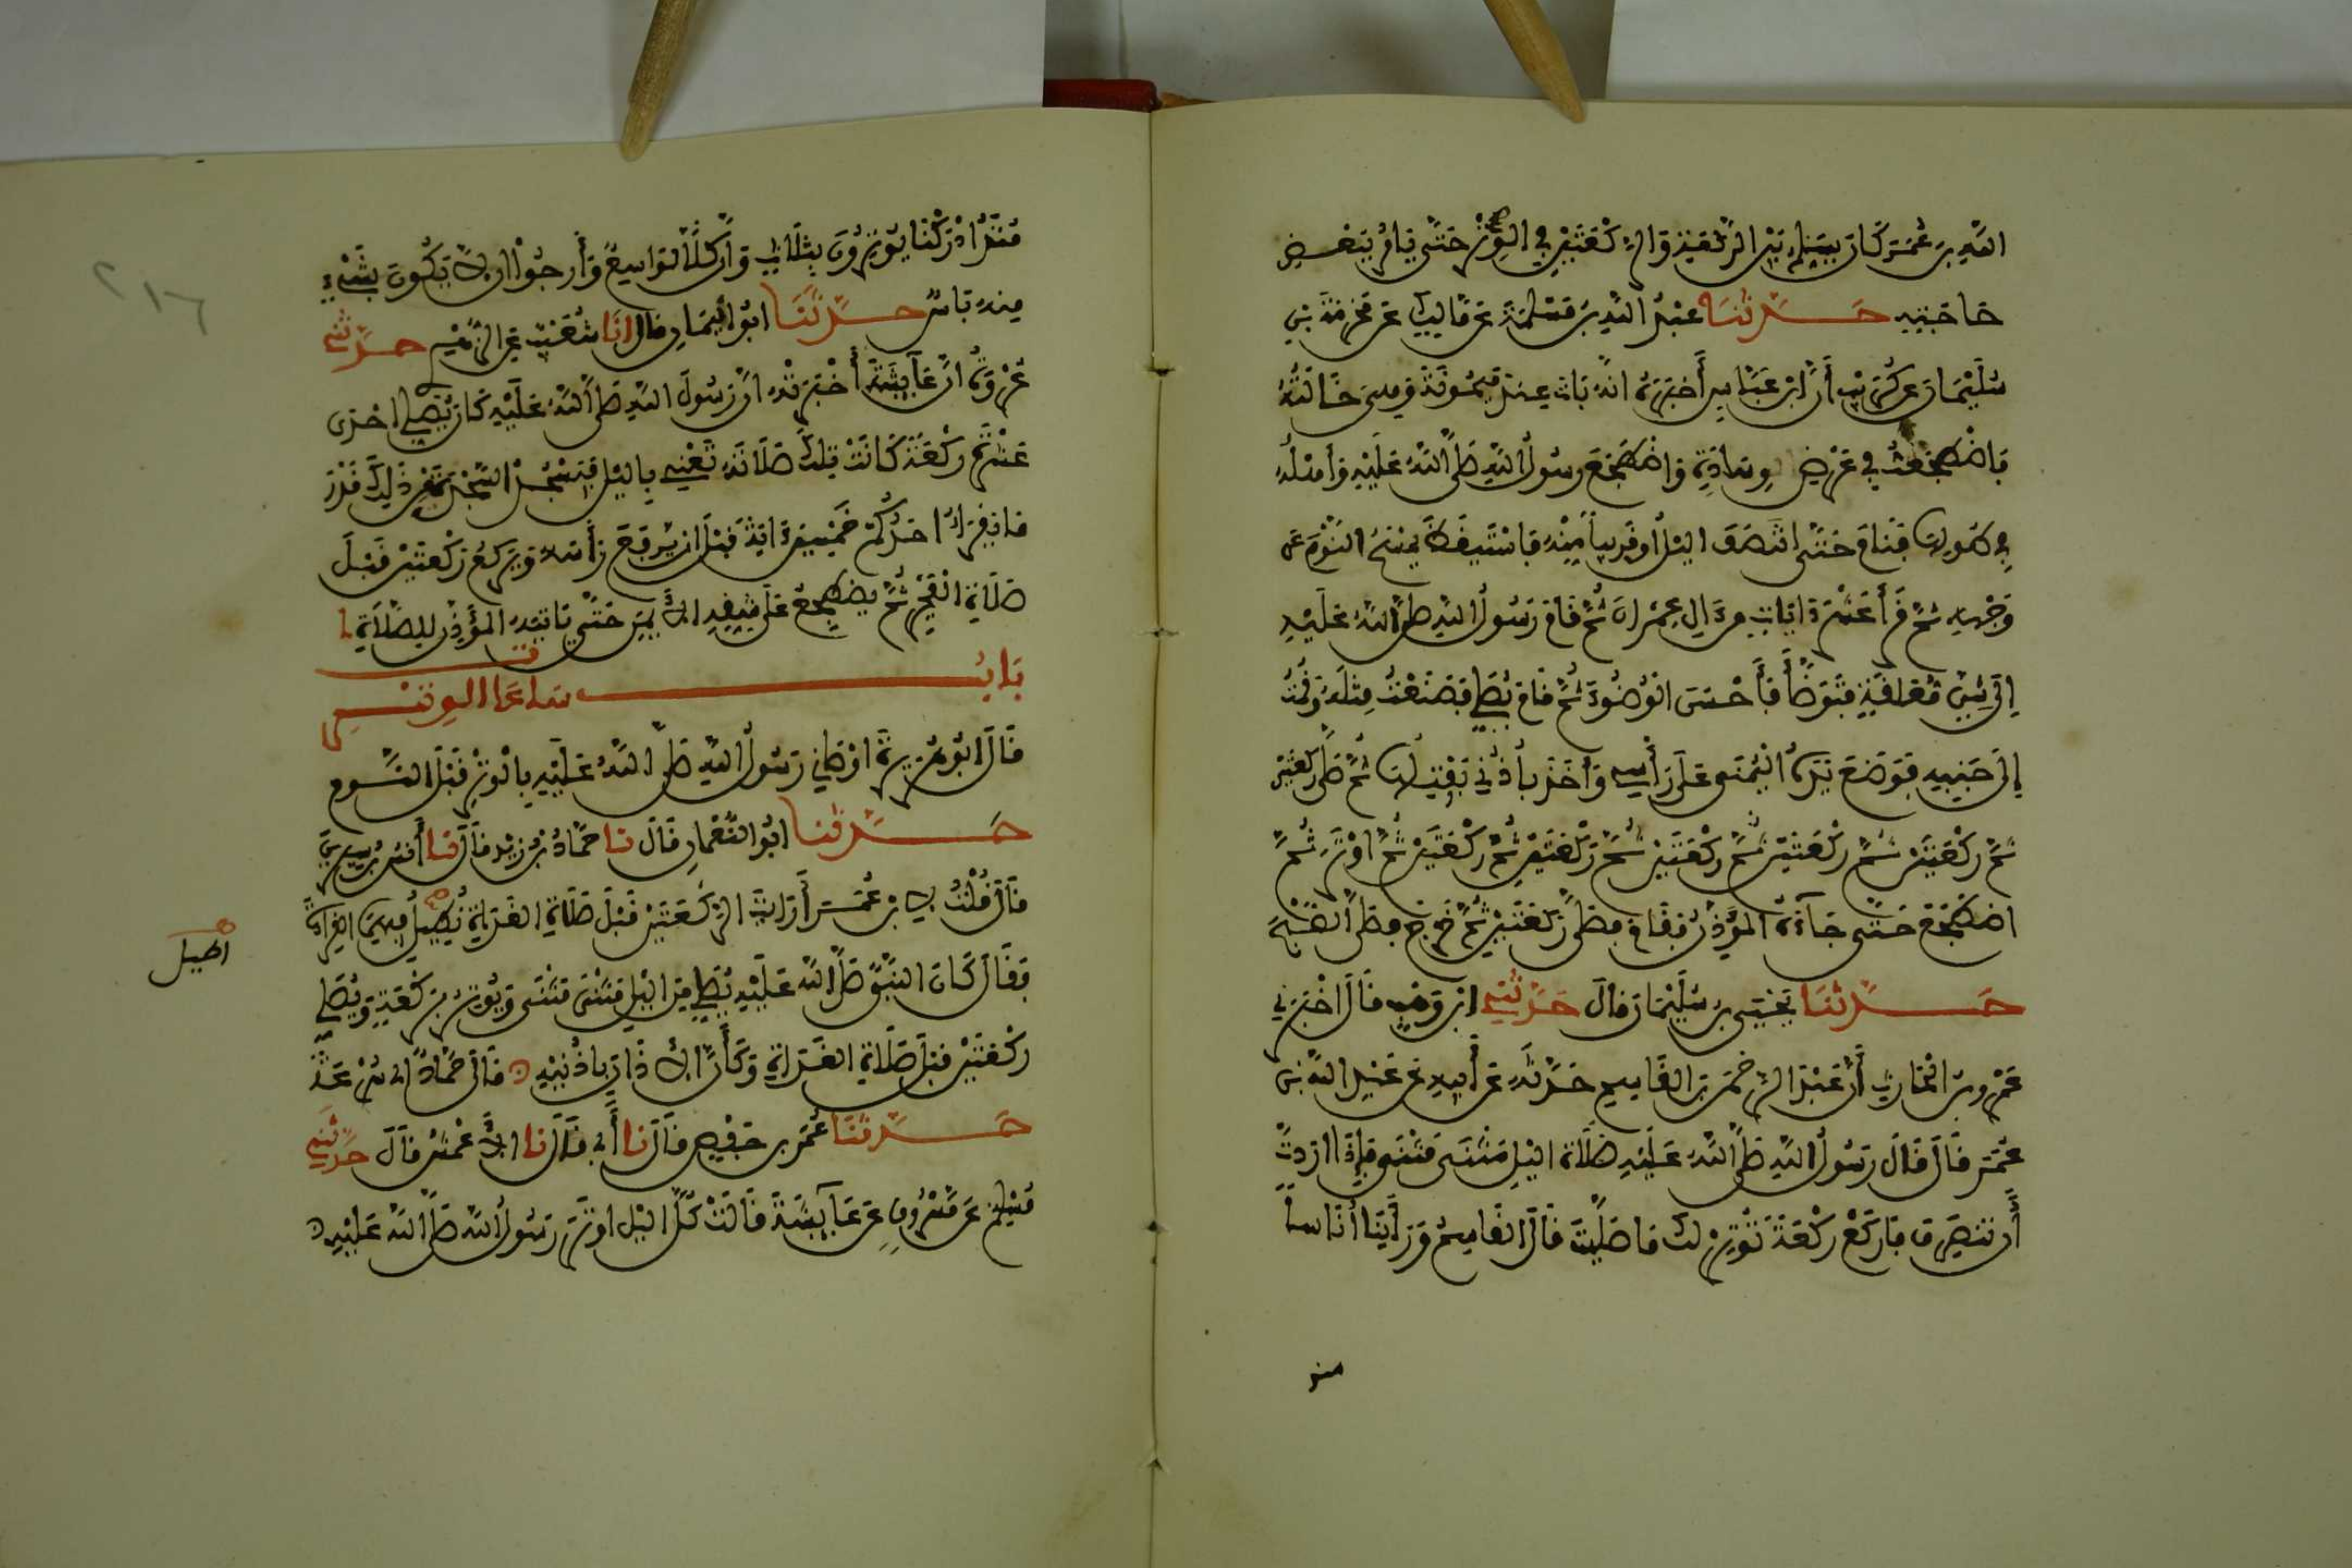 اللَّهِ بنَ عُمَرَ كَانَ يُسَلِّمُ بَيْنَ الرَّكْعَةِ وَالرَّكْعَتَيْنِ فِي الْوِتْرِ حَتَّى يَامُرَ بِبَعْضِ
حَاجَتِهِ حَدَّثَنَا عَبْدُ اللَّهِ بنُ مَسْلَمَةَ عَن مَّالِكٍ عَن مَخْرَمَةَ بْنِ
سُلَيْمَانَ عَن كُرَيْبٍ أَنَّ ابنَ عَبَّاسٍ أَخْبَرَهُ أَنَّهُ بَاتَ عِندَ مَيْمُونَةَ وَهِيَ خَالَتُهُ
فَاضْطَجَعْتُ فِي عَرْضِ وِسَادَةٍ وَاضْطَجَعَ رَسُولُ اللَّهِ صَلَّى اللَّهُ عَلَيْهِ وَأَهْلُهُ
فِي طُولِهَا فَنَامَ حَتَّى انتَصَفَ اليْلُ أَوْ قَرِيباً مِّنْهُ فَاسْتَيْقَظَ يَمْسَحُ النَّوْمَ عَن
وَجْهِهِ ثُمَّ قَرَأَ عَشْرَ ايَاتٍ مِن الِ عِمْرَانَ ثُمَّ قَامَ رَسُولُ اللَّهِ صَلَّى اللَّهُ عَلَيْهِ
إِلَى شَنٍّ مُعَلَّقَةٍ فَتَوَضَّأَ فَأَحْسَنَ الْوُضُوءَ ثُمَّ قَامَ يُصَلِّي فَصَنَعْتُ مِثْلَهُ وَقُمْتُ
إِلَى جَنبِهِ فَوَضَعَ يَدَهُ الْيُمْنَى عَلَى رَأْسِي وَأَخَذَ بِأُذُنِي يَفْتِلُهَا ثُمَّ صَلَّى رَكْعَتَيْنِ
ثُمَّ رَكْعَتَيْنِ ثُمَّ رَكْعَتَيْنِ ثُمَّ رَكْعَتَيْنِ ثُمَّ رَكْعَتَيْنِ ثُمَّ رَكْعَتَيْنِ ثُمَّ اوْتَرَ ثُمَّ
اضْطَجَعَ حَتَّى جَاءَهُ الْمُؤَذِّنُ فَقَامَ فَصَلَّى رَكْعَتَيْنِ ثُمَّ خَرَجَ فَصَلَّى الصُّبْحَ
حَدَّثَنَا يَحْيَى بنُ سُلَيْمَانَ قَالَ حَدَّثَنِي ابنُ وَهْبٍ قَالَ اخْبَرَنِي
عَمْرُو بنُ الْحَارِثِ أَنَّ عَبْدَ الرَّحْمَنِ بنَ القَاسِمِ حَدَّثَهُ عَن أَبِيهِ عَن عَبْدِ اللَّهِ بْنِ
عُمَرَ قَالَ قَالَ رَسُولُ اللَّهِ صَلَّى اللَّهُ عَلَيْهِ صَلَاةُ اليْلِ مَثْنَى مَثْنَى فَإِذَا ارَدتَّ
أَن تَنصَرِفَ فَارْكَعْ رَكْعَةً تُوتِرُ لَكَ مَا صَلَّيْتَ قَالَ القَاسِمُ وَرَأَيْنَا أُنَاساً
منذ
مُنْذُ ادْرَكْنَا يُوتِرُونَ بِثَلَاثٍ وَإِنَّ كُلّاً لَوَاسِعٌ وَأَرجُوا ان لَّا يَكُونَ بِشَيْءٍ
مِنهُ بَاسٌ حَدَّثَنَا ابُو الْيَمَانِ قَالَ انَا شُعَيْبٌ عَنِ الزُّهْرِيِّ حَدَّثَنِي
عُرْوَةُ انَّ عَآئِشَةَ أَخْبَرَتْهُ انَّ رَسُولَ اللَّهِ صَلَّى اللَّهُ عَلَيْهِ كَانَ يُصَلِّي احْدَى
عَشْرَةَ رَكْعَةً كَانَتْ تِلْكَ صَلَاتَهُ تَعْنِي بِاليْلِ فَيَسْجُدُ السَّجْدَةَ مِن ذَلِكَ قَدْرَ
مَا يَقْرَأُ احَدُكُمْ خَمْسِينَ ايَةً قَبْلَ ان يَرْفَعَ رَأْسَهُ وَيَرْكَعُ رَكْعَتَيْنِ قَبْلَ
صَلَاةِ الْفَجْرِ ثُمَّ يَضْطَجِعُ عَلَى شِقِّهِ الأَيْمَنِ حَتَّى يَاتِيَهُ الْمُؤَذِّنُ لِلصَّلَاةِ
بَابُ سَاعَات الوِتْرِ
قَالَ ابُو هُرَيْرَةَ اوْصَانِي رَسُولُ اللَّهِ صَلَّى اللَّهُ عَلَيْهِ بِالْوِتْرِ قَبْلَ النَّوْمِ
حَدَّثَنَا ابُو النُّعْمَانِ قَالَ نَا حَمَّادُ بْنُ زَيْدٍ قَالَ نَا أَنَسُ بنُ سِيرِينَ
قَالَ قُلْتُ لِابْنِ عُمَرَ أَرَأَيْتَ الرَّكْعَتَيْنِ قَبْلَ صَلَاةِ الغَدَاةِ نُطِيلُ فِيهِمَا القِرَاءَةَ
اطيل
فَقَالَ كَانَ النَّبِيُّ صَلَّى اللَّهُ عَلَيْهِ يُصَلِّي مِنَ اليْلِ مَثْنَى مَثْنَى وَيُوتِرُ بِرَكْعَةٍ وَيُصَلِّي
رَكْعَتَيْنِ قَبْلَ صَلَاةِ الغَدَاةِ وَكَأَنَّ الأَذَانَ بِاذْنَيْهِ قَالَ حَمَّادٌ اي بِسُرْعَةٍ
حَدَّثَنَا عُمَرُ بنُ حَفْصٍ قَالَ نَا أَبِي قَالَ نَا الأَعْمَشُ قَالَ حَدَّثَنِي
مُسْلِمٌ عَن مَّسْرُوقٍ عَن عَآئِشَةَ قَالَتْ كُلَّ اليْلِ اوْتَرَ رَسُولُ اللَّهِ صَلَّى اللَّهُ عَلَيْهِ
٢١٦